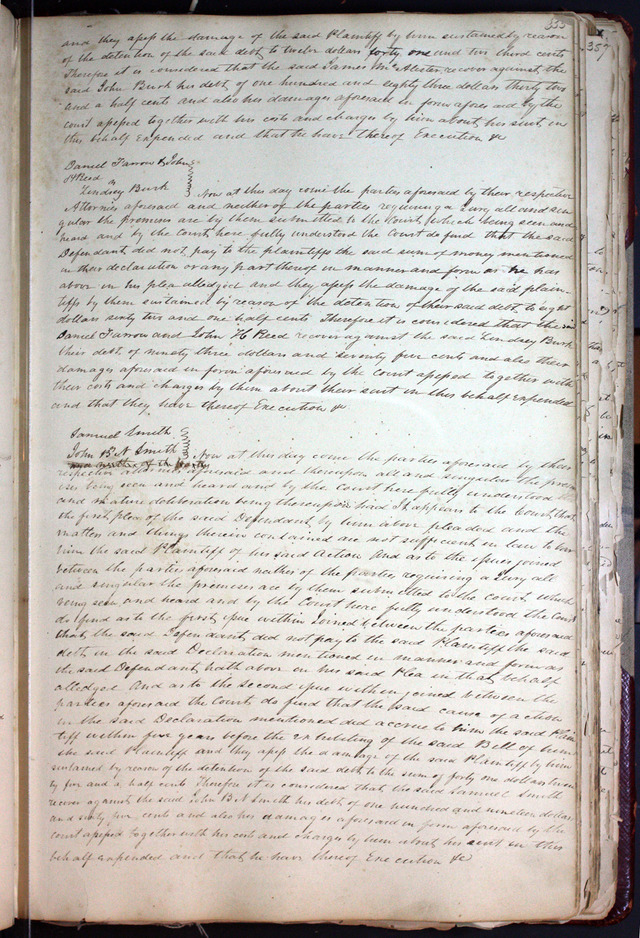 355
and they assess the damage of the said Plaintiff by him sustained by reason
of the detention of the said debt to twelve dollars forty one and two third cents
Therefore it is considered that the said James Mc Alister recover against the
said John Bush his debt of one hundred and eighty three dollars thirty two
and a half cents and also his damages aforesaid in form afores aid by the
court assessed together with his costs and charges by him about his suit in
this behalf expended and that he have thereof Execution &c
Daniel Farrow & John
H Reed
vs
Lindsey Bush Now at this day come the parties aforesaid by their respective
Attornies aforesaid and neither of the parties requiring a Jury all and sin
gular the premises are by them submitted to the Court, which being seen and
heard and by the Court here fully understood the Court do find that the said
Defendant did not pay to the plaintiffs the said sum of money mentioned
in their declaration or any part thereof in manner and form as he has
above in his plea alledged and they assess the damage of the said plain-
tiffs by them sustained by reason of the detention of their said debt to eight
dollars sixty two and one half cents Therefore it is considered that the said
Daniel Farrow and John H Reed recover against the said Lindsey Bush
their debt of ninety three dollars and seventy five cents and also their
damages aforesaid in form aforesaid by the court assessed together with
their costs and charges by them about their suit in this behalf expended
and that they have thereof Execution &c
Samuel Smith
vs
John B. N Smith Now at this day come the parties aforesaid by their
and neither of the parties
respective attornies aforesaid and thereupon all and singular the prem
ises being seen and heard and by the court here fully understood
and mature deliberation being thereupon had It appears to the Court that
the first plea of the said Defendant by him above pleaded and the
matters and things therein contained are not sufficient in law to bar
him the said Plaintiff of his said action And as to the issue joined
between the parties aforesaid neither of the parties requiring a Jury all
and singular the premises are by them submitted to the court which
being seen and heard and by the Court here fully understood the Court
do find as to the first issue within Joined between the parties aforesaid
that the said Defendant did not pay to the said Plaintiff the said
debt in the said Declaration mentioned in manner and form as
the said Defendant hath above in his said Plea in that behalf
alledged And as to the second issue within joined between the
parties aforesaid the Court do find that the said cause of action
in the said Declaration mentioned did accrue to him the said Plain
tiff within five years before the exhibiting of the said Bill of him
the said Plaintiff and they assess the damage of the said Plaintiff by him
sustained by reason of the detention of the said debt to the sum of forty one dollars twen
ty five and a half cents Therefore it is considered that the said Samuel Smith
recover against the said John B N Smith his debt of one hundred and nineteen dollars
and sixty five cents and also his damages aforesaid in form aforesaid by the
court assessed together with his costs and charges by him about his suit in this
behalf expended and that he have thereof Execution &c
357